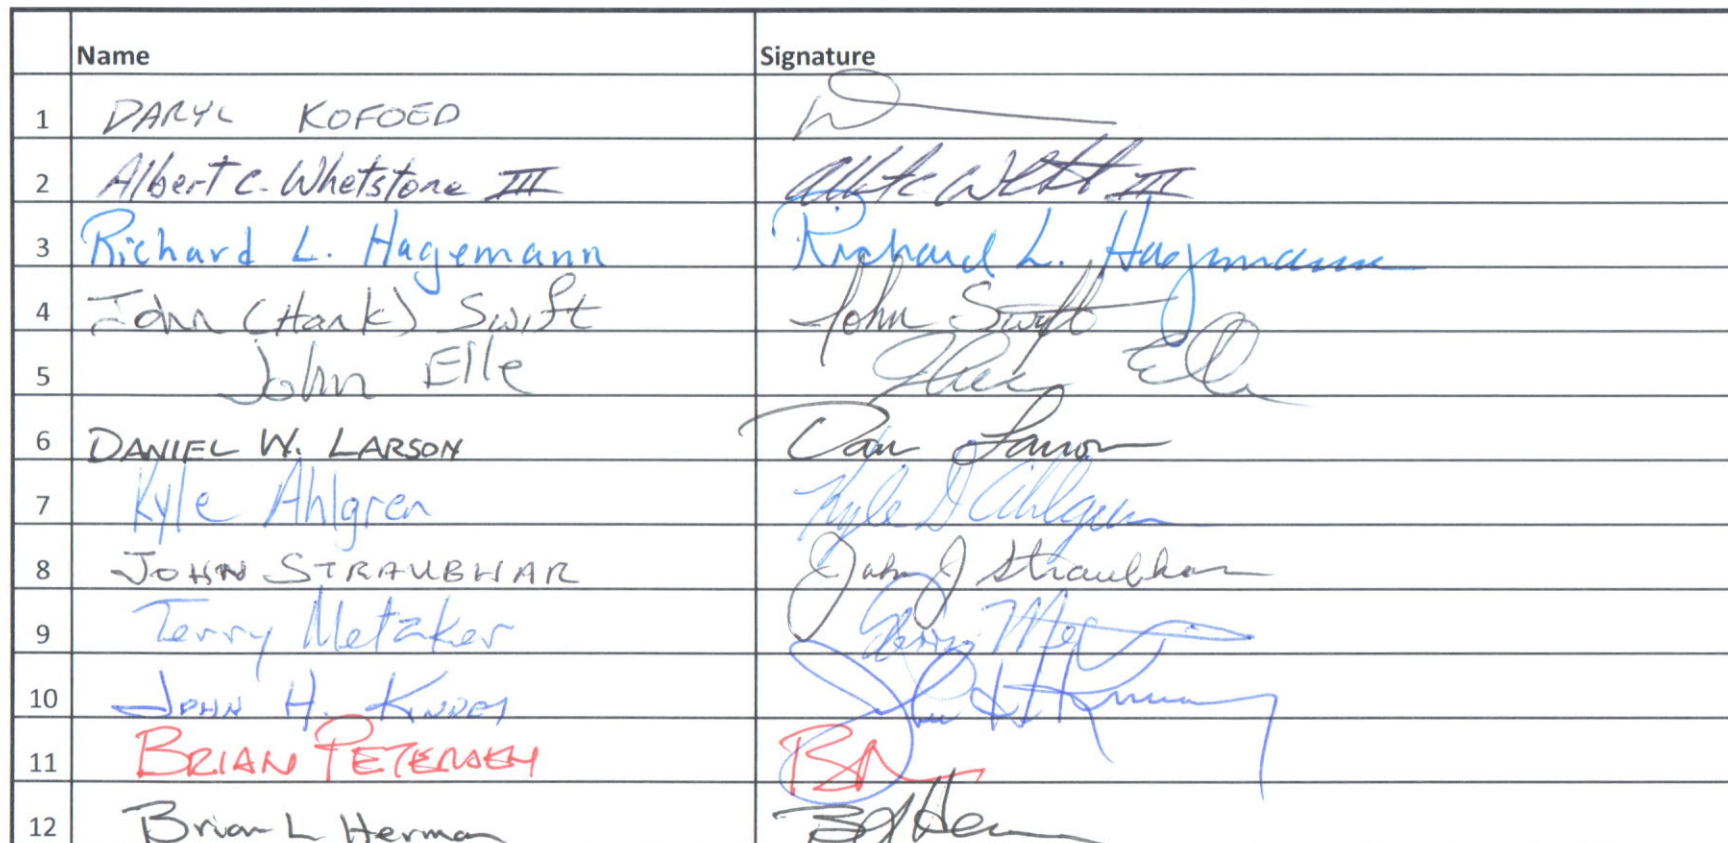 Name Signature
1 DARYL KOFOED
2 Albert C. Whetstone III Albert C Whetst III
3 Richard L. Hagemann Richard L. Hagemann
4 John (Hank) Swift John Swift
5 John Elle Elle
6 DANIEL W. LARSON Dan Larson
7 Kyle Ahlgren Kyle D Ahlgren
8 JOHN STRAUBHAR John J Straubhar
9 Terry Metzker Terry
10 JOHN H. KINNEY John H Kinney
11 BRIAN PETERSEN
12 Brian L Herman